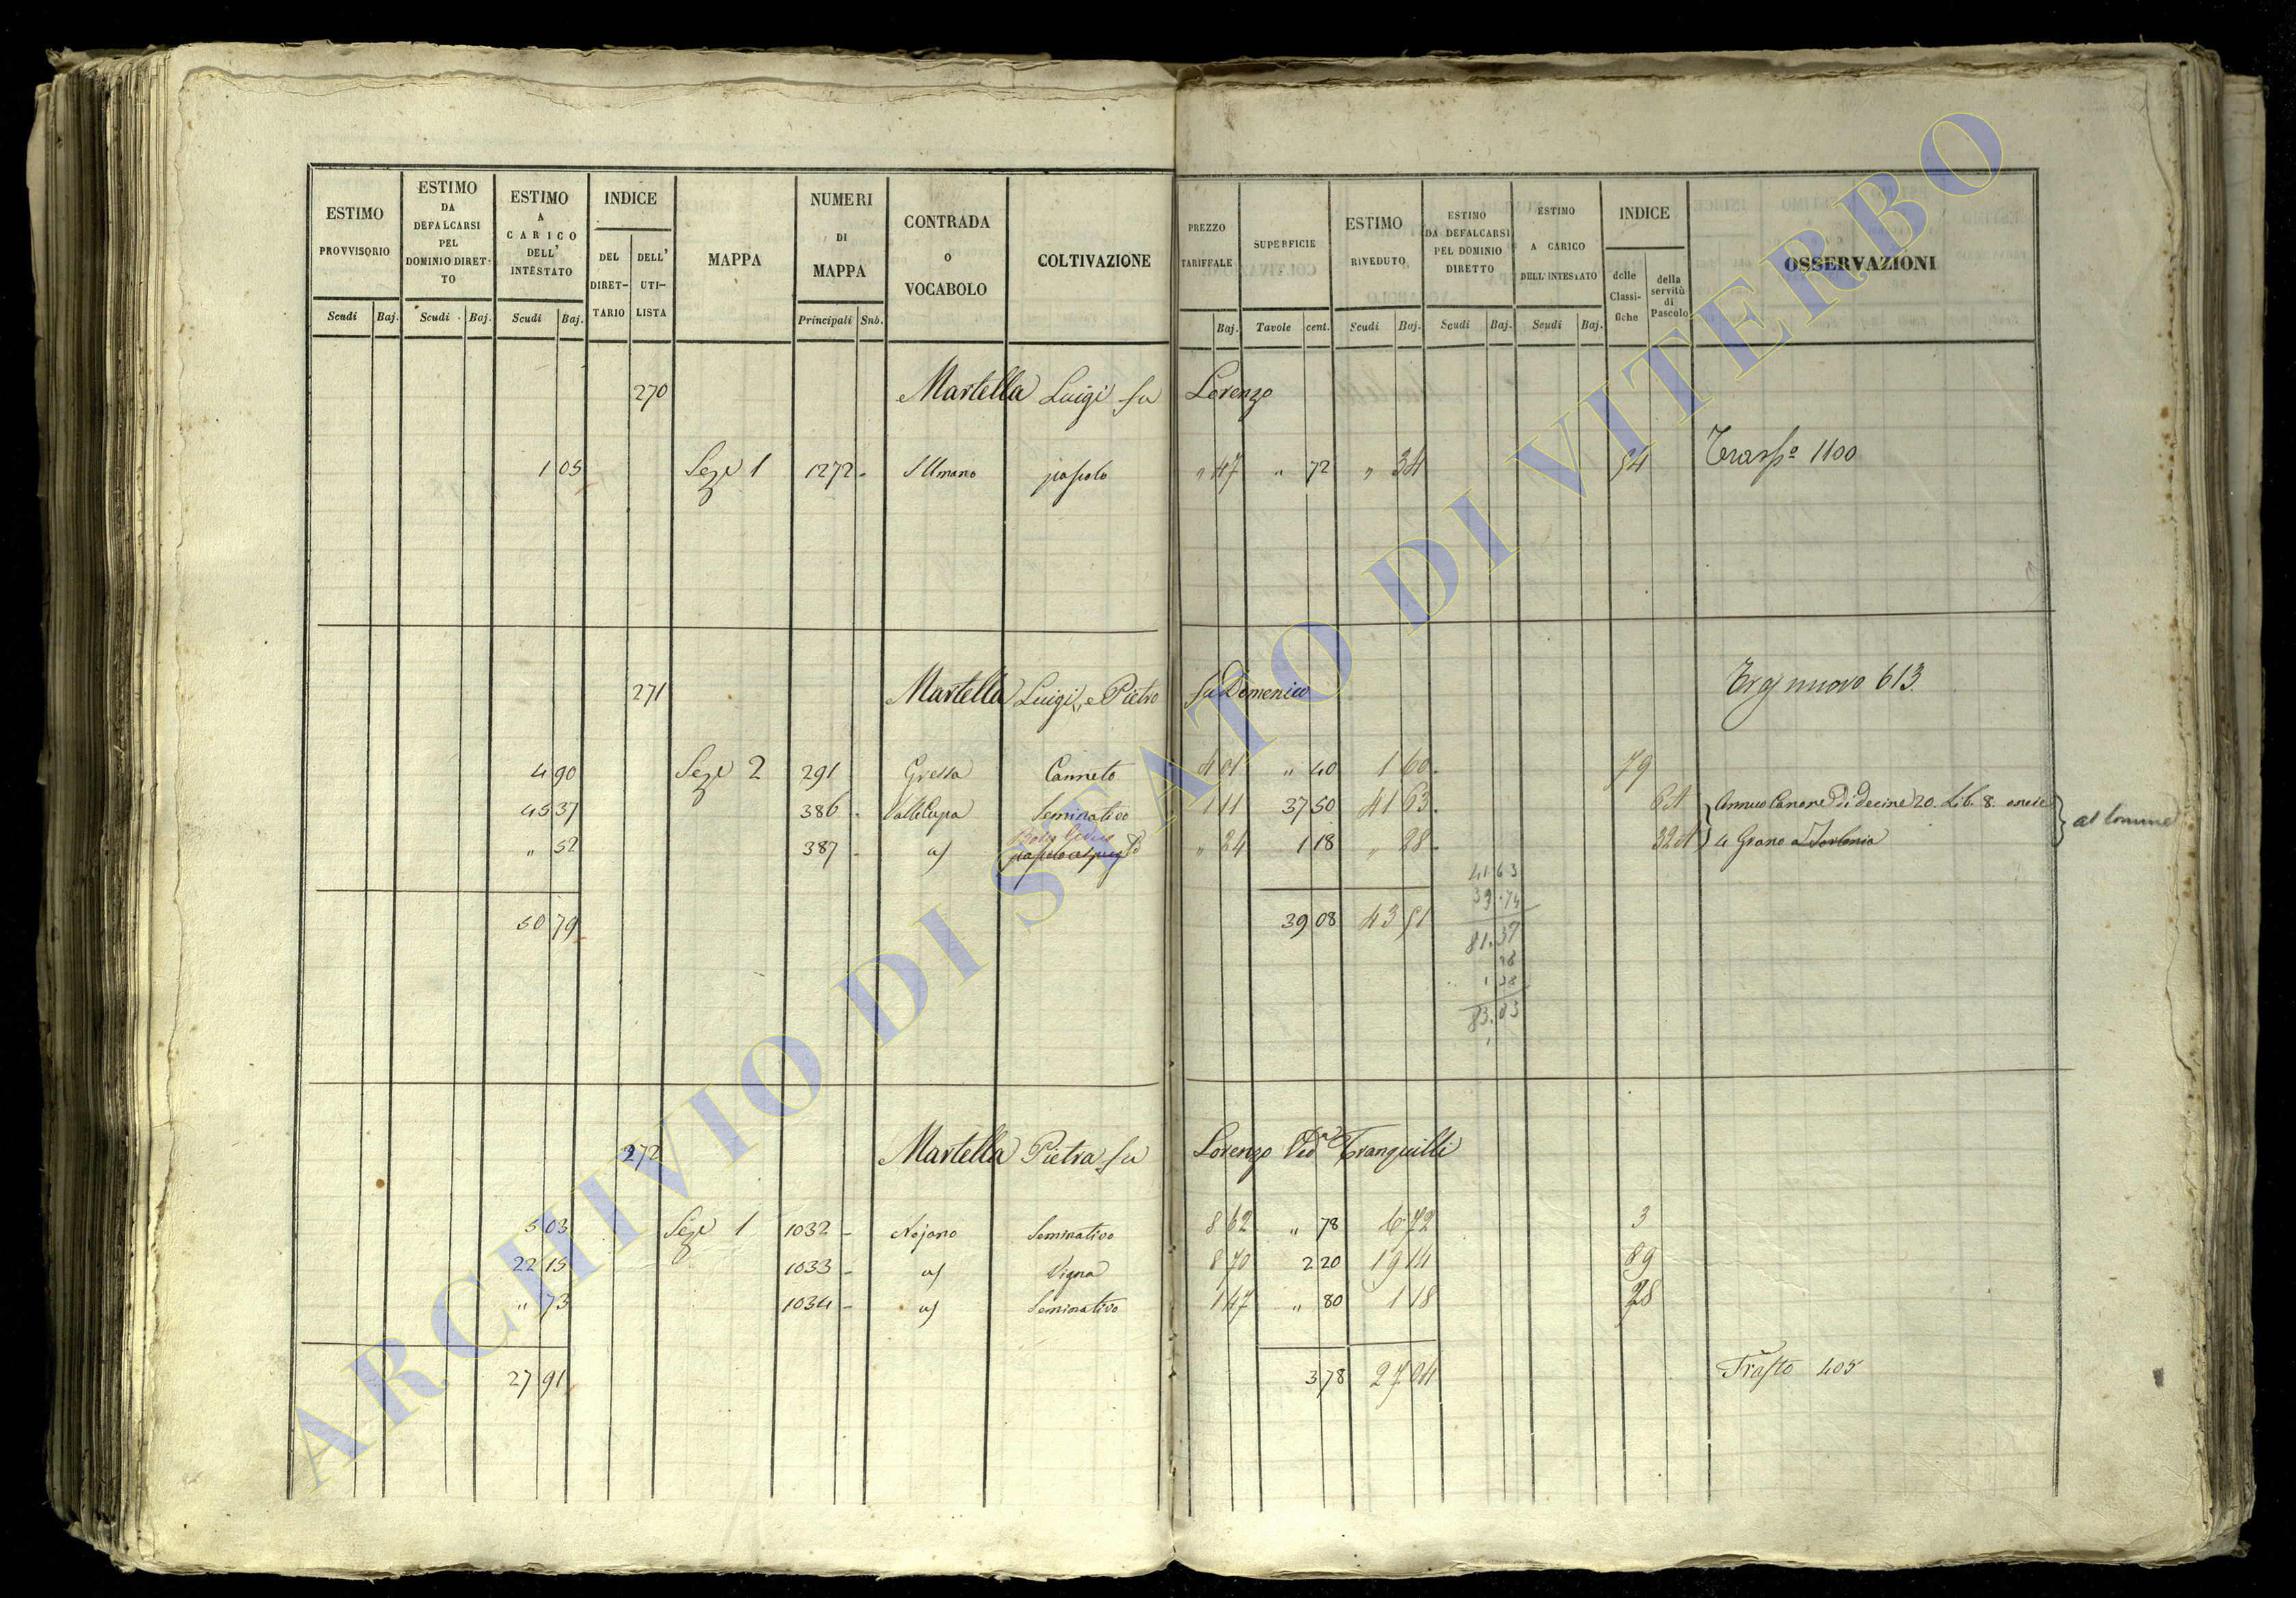 ESTIMO PROVVISORIO Scudi Baj.
ESTIMO DA DEFALCARSI PEL DOMINIO DIRET-TO Scudi Baj.
ESTIMO A CARICO DELL' INTESTATO Scudi Baj.
INDICE DEL DIRET-TARIO DELL' UTI-LISTA
MAPPA
NUMERI DI MAPPA Principali Sub.
CONTRADA O VOCABOLO
COLTIVAZIONE
PREZZO TARIFFALE Baj.
SUPERFICIE Tavole cent.
ESTIMO RIVEDUTO Scudi Baj.
ESTIMO DA DEFALCARSI PEL DOMINIO DIRETTO Scudi Baj.
ESTIMO A CARICO DELL'INTESTATO Scudi Baj.
INDICE delle Classi-fiche della servitù di Pascolo
OSSERVAZIONI
270 Martella Luigi fu Lorenzo
1 05 Sez.e 1 1272 - pascolo " 47 " 72 " 34 54 1100
271 Martella Luigi, e Pietro fu Domenico nuovo 613.
4 90 Sez.e 2 291 Canneto 4 01 " 40 1 60 79
45 37 386 - Valle Cupa Seminativo 1 11 37 50 41 63 Annuo Canone di Decine 20. Lib. 8. oncie
" 52 387 - " 24 1 18 " 28 4 Grano a
al Comune
41 63
39.74
50 79 39 08 43 51
81.37
1 28
83.03
272 Martella Pietra fu Lorenzo Ved.a Tranquilli
5 03 Sez.e 1 1032 - Nojano Seminativo 8 62 " 78 6 72 3
22 15 1033 - Vigna 8 70 2 20 19 14 89
" 73 1034 - Seminativo 1 47 " 80 1 18 28
27 91 3 78 27 04 405
ARCHIVIO DI STATO DI VITERBO